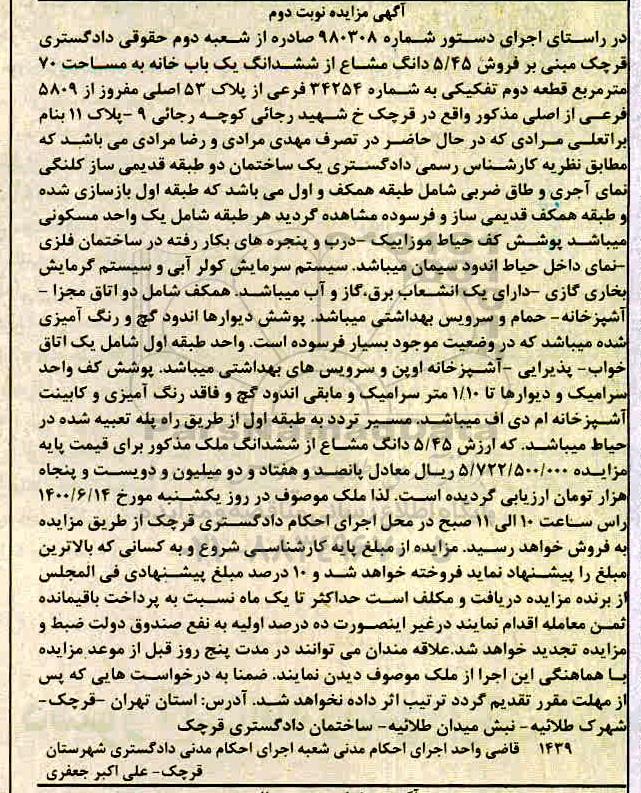 آگهی مزایده نوبت دوم
در راستای اجرای دستور شماره ۹۸۰۳۰۸ صادره از شعبه دوم حقوقی دادگستری
قرچک مبنی بر فروش ۵/۴۵ دانگ مشاع از ششدانگ یک باب خانه به مساحت ۷۰
مترمربع قطعه دوم تفکیکی به شماره ۳۴۲۵۴ فرعی از پلاک ۵۳ اصلی مفروز از ۵۸۰۹
فرعی از اصلی مذکور واقع در قرچک خ شهید رجائی کوچه رجائی ۹ -پلاک ۱۱ بنام
براتعلی مرادی که در حال حاضر در تصرف مهدی مرادی و رضا مرادی می باشد که
مطابق نظریه کارشناس رسمی دادگستری یک ساختمان دو طبقه قدیمی ساز کلنگی
نمای آجری و طاق ضربی شامل طبقه همکف و اول می باشد که طبقه اول بازسازی شده
و طبقه همکف قدیمی ساز و فرسوده مشاهده گردید هر طبقه شامل یک واحد مسکونی
میباشد پوشش کف حیاط موزاییک -درب و پنجره های بکار رفته در ساختمان فلزی
-نمای داخل حیاط اندود سیمان میباشد. سیستم سرمایش کولر آبی و سیستم گرمایش
بخاری گازی -دارای یک انشعاب برق،گاز و آب میباشد. همکف شامل دو اتاق مجزا -
آشپزخانه- حمام و سرویس بهداشتی میباشد. پوشش دیوارها اندود گچ و رنگ آمیزی
شده میباشد که در وضعیت موجود بسیار فرسوده است. واحد طبقه اول شامل یک اتاق
خواب- پذیرایی -آشپزخانه اوپن و سرویس های بهداشتی میباشد. پوشش کف واحد
سرامیک و دیوارها تا ۱/۱۰ متر سرامیک و مابقی اندود گچ و فاقد رنگ آمیزی و کابینت
آشپزخانه ام دی اف میباشد. مسیر تردد به طبقه اول از طریق راه پله تعبیه شده در
حیاط میباشد. که ارزش ۵/۴۵ دانگ مشاع از ششدانگ ملک مذکور برای قیمت پایه
مزایده ۵/۷۲۲/۵۰۰/۰۰۰ ریال معادل پانصد و هفتاد و دو میلیون و دویست و پنجاه
هزار تومان ارزیابی گردیده است. لذا ملک موصوف در روز یکشنبه مورخ ۱۴۰۰/۶/۱۴
راس ساعت ۱۰ الی ۱۱ صبح در محل اجرای احکام دادگستری قرچک از طریق مزایده
به فروش خواهد رسید. مزایده از مبلغ پایه کارشناسی شروع و به کسانی که بالاترین
مبلغ را پیشنهاد نماید فروخته خواهد شد و ۱۰ درصد مبلغ پیشنهادی فی المجلس
از برنده مزایده دریافت و مکلف است حداکثر تا یک ماه نسبت به پرداخت باقیمانده
ثمن معامله اقدام نمایند درغیر اینصورت ده درصد اولیه به نفع صندوق دولت ضبط و
مزایده تجدید خواهد شد.علاقه مندان می توانند در مدت پنج روز قبل از موعد مزایده
با هماهنگی این اجرا از ملک موصوف دیدن نمایند. ضمنا به درخواست هایی که پس
از مهلت مقرر تقدیم گردد ترتیب اثر داده نخواهد شد. آدرس: استان تهران -قرچک-
شهرک طلائیه- نبش میدان طلائیه- ساختمان دادگستری قرچک
۱۴۳۹ قاضی واحد اجرای احکام مدنی شعبه اجرای احکام مدنی دادگستری شهرستان
قرچک- علی اکبر جعفری